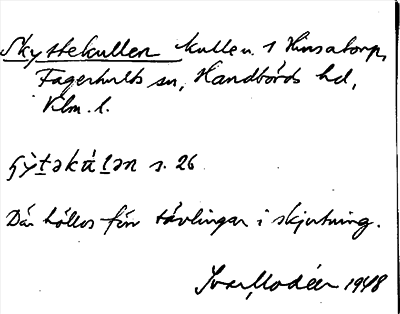 Skyttekullen kulle n. 1 Hinsatorp,
Fagerhults sn, Handbörds hd,
Klm. l.
s. 26
Där hölls förr tävlingar i skjutning.
Ivar Modéer 1948